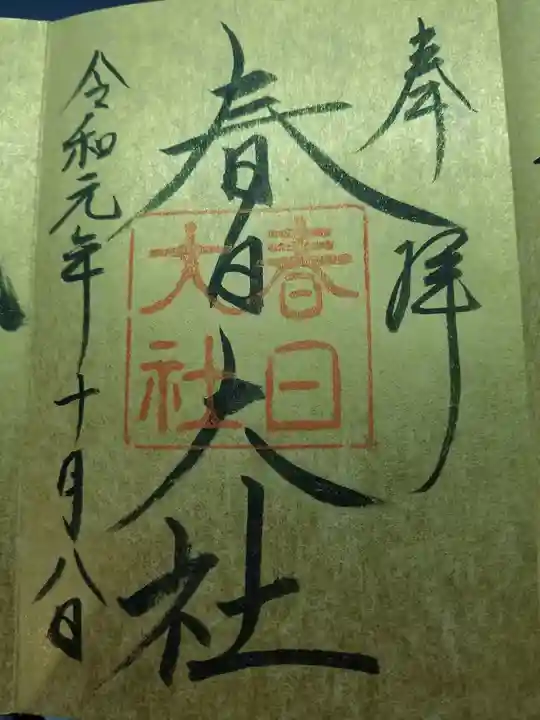 奉拝
春日大社
春日
大社
令和元年十月八日